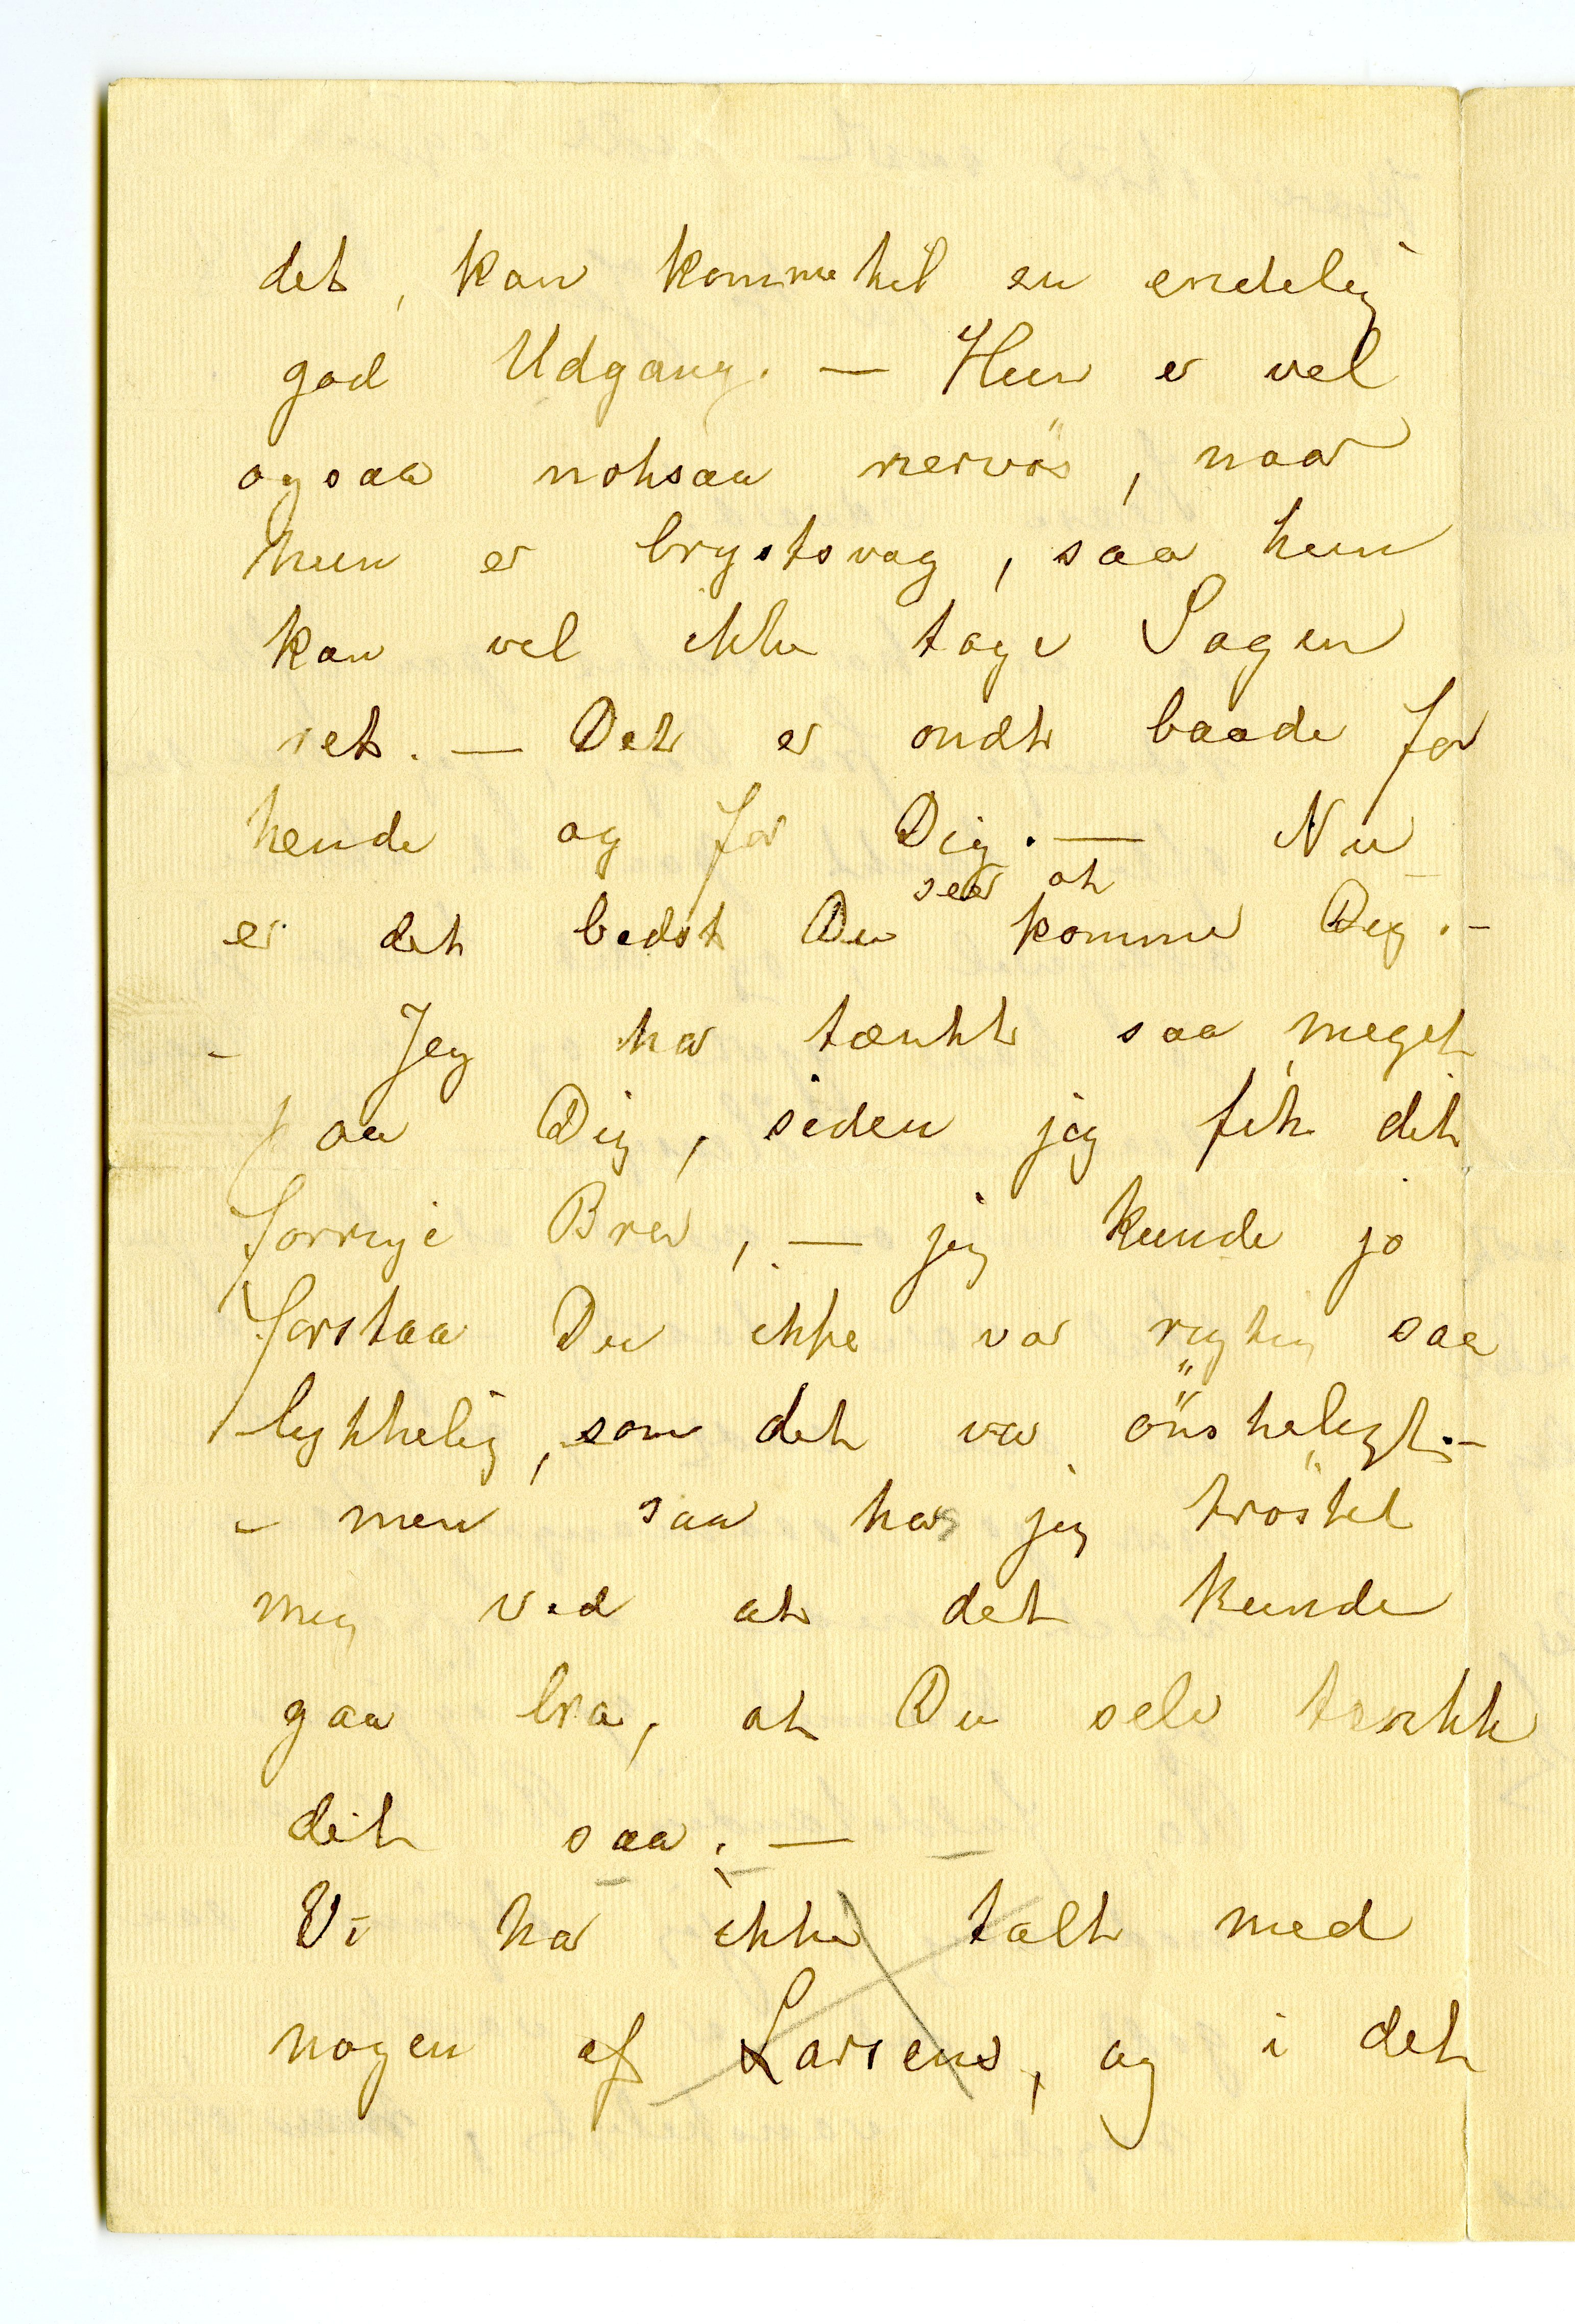 det, kan komme til en endelig
god Udgang. — Hun er vel
ogsaa noksaa nervös, naar
hun er brystsvag, saa hun
kan vel ikke tage Sagen
ret. — Det er ondt baade for
hende og for Dig. — Nu
seer at
er det bedst Du komme Dig. -
- Jeg har tænkt saa meget
paa Dig, siden jeg fik dit
forrige Brev, — jeg kunde jo
forstaa Du ikke var rigtig saa
lykkelig, som det var önskeligt. -
- men saa har jeg tröstet
mig ved at det kunde
gaa bra, at Du selv tænkte
det saa. —
Vi har ikke talt med
nogen af Larsens, og i det